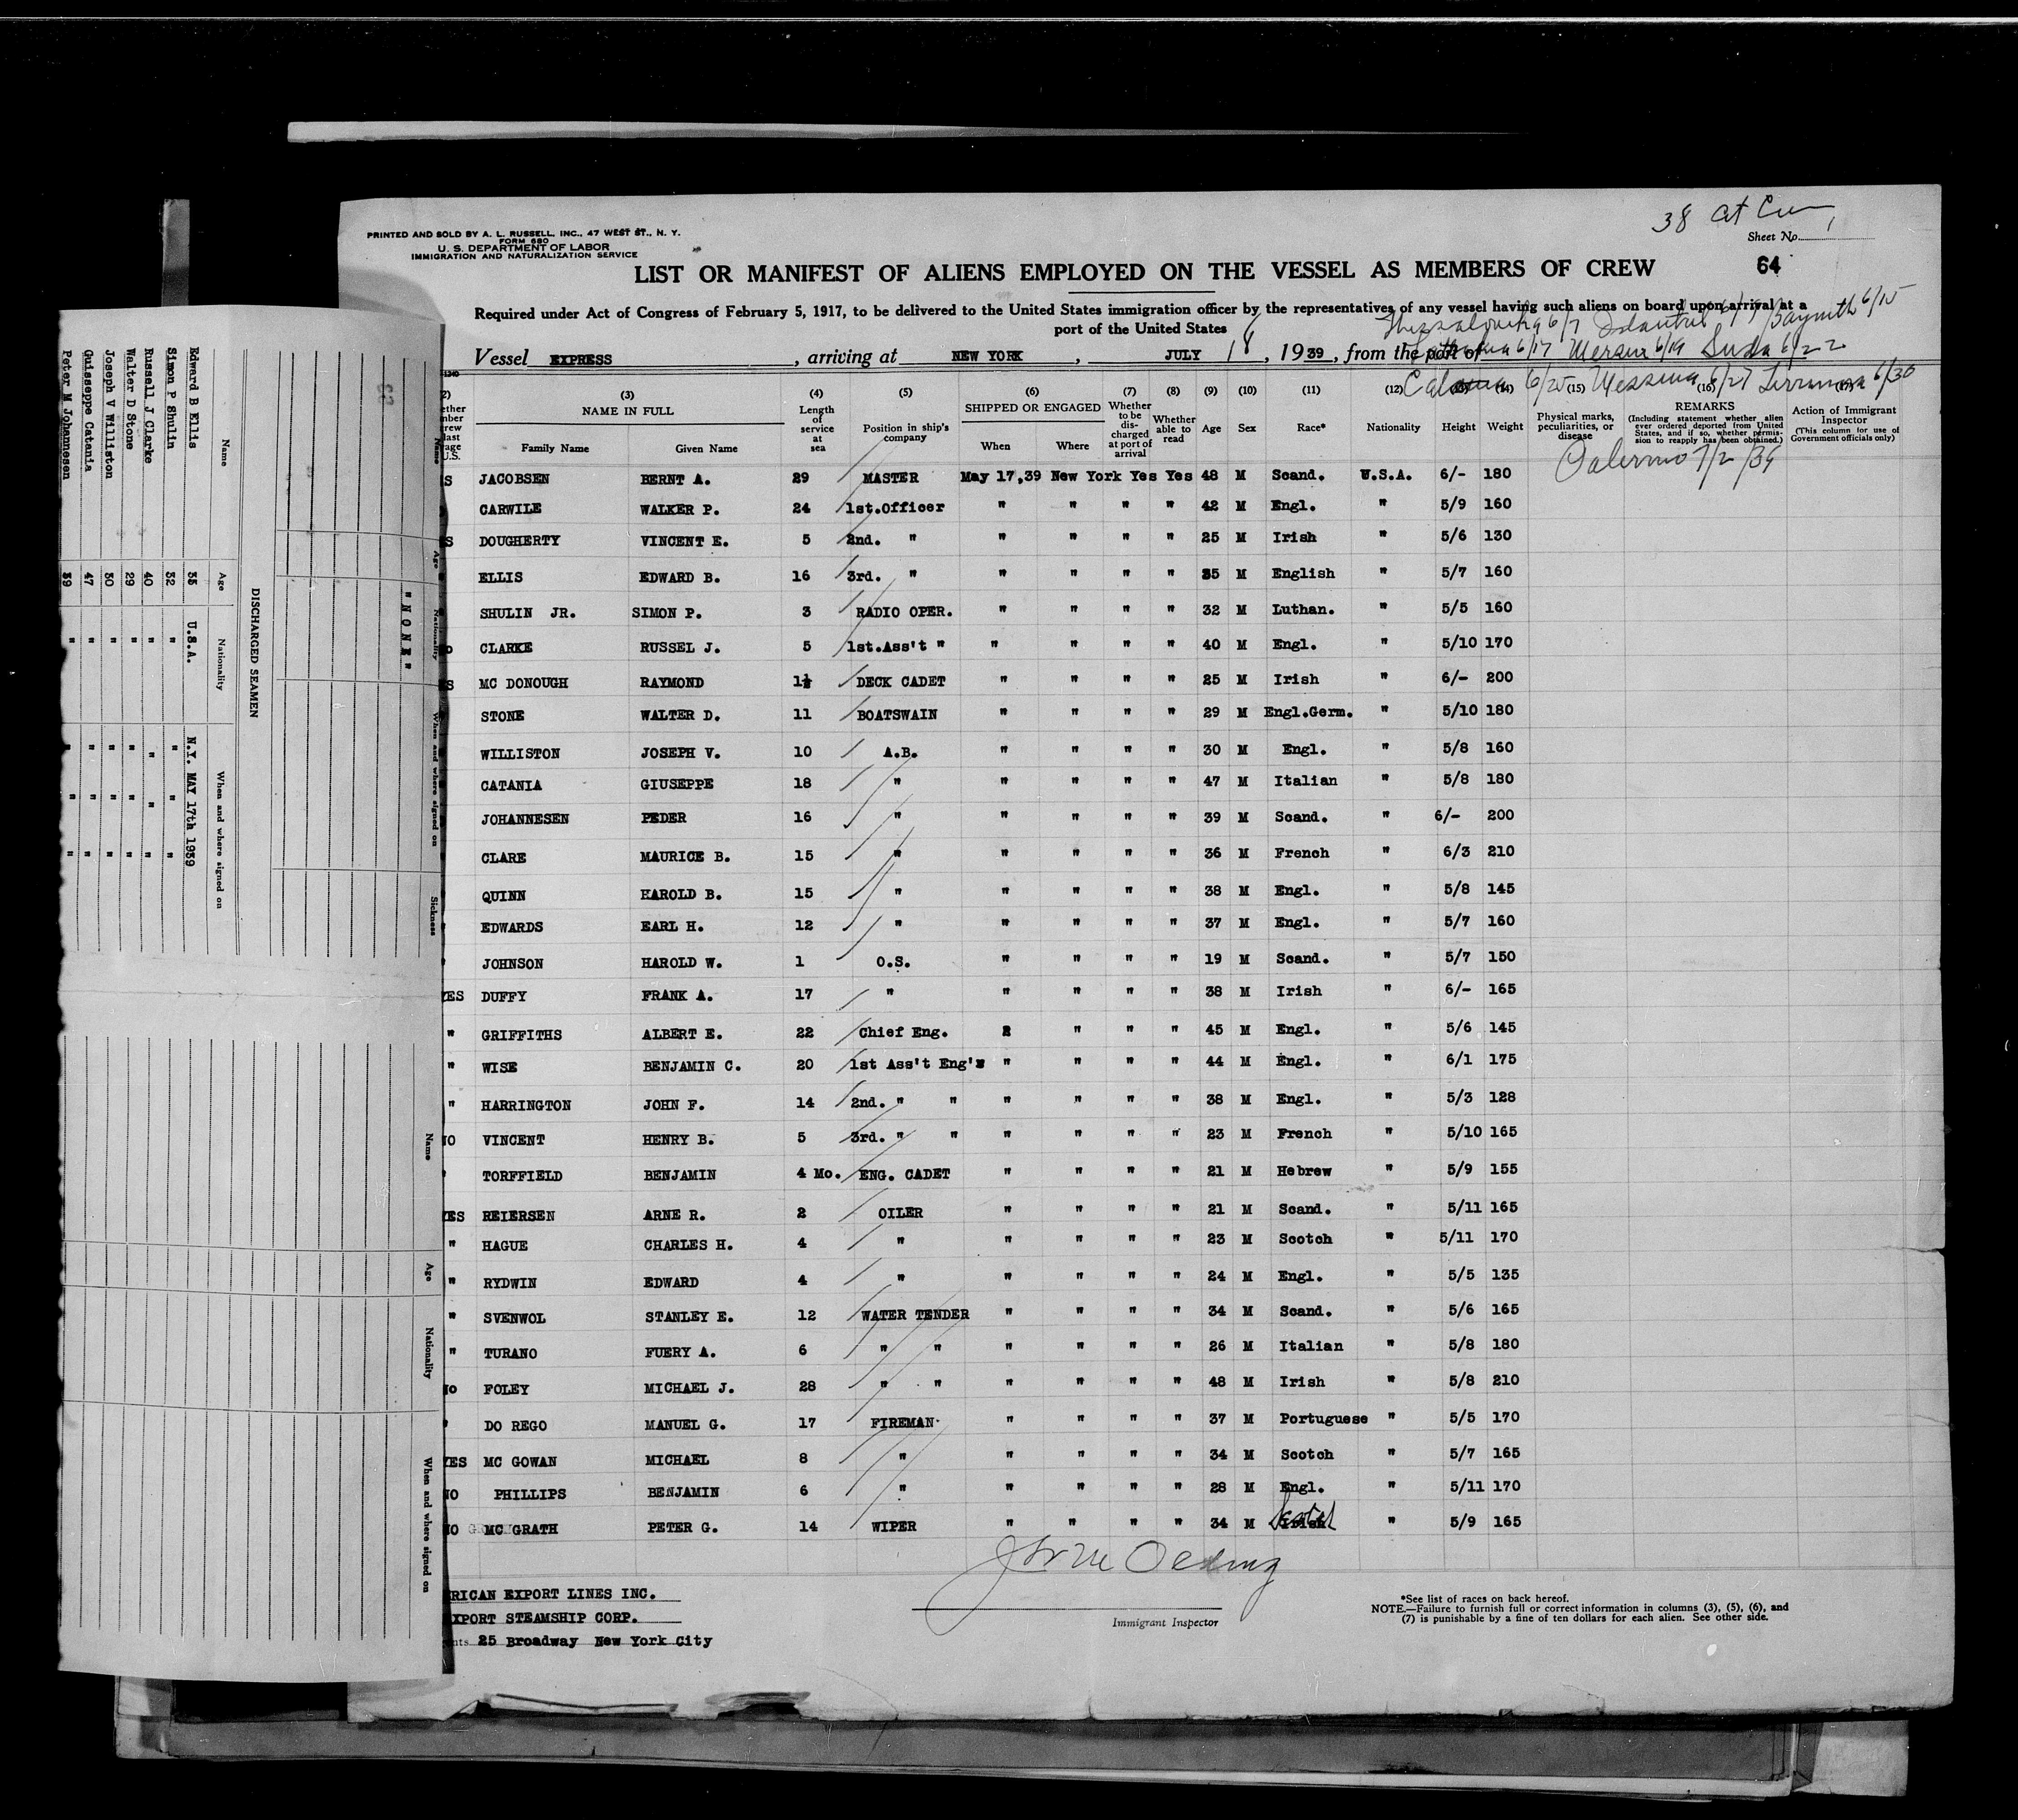 38 at Cu
PRINTED AND SOLD BY A. L. RUSSELL, INC., 47 WEST ST., N. Y.
FORM 680
U. S. DEPARTMENT OF LABOR
IMMIGRATION AND NATURALIZATION SERVICE
Sheet No. 1
LIST OR MANIFEST OF ALIENS EMPLOYED ON THE VESSEL AS MEMBERS OF CREW 64
Required under Act of Congress of February 5, 1917, to be delivered to the United States immigration officer by the representatives of any vessel having such aliens on board upon arrival at a
port of the United States
6/7 6/15
Vessel EXPRESS, arriving at NEW YORK, JULY 18, 1939, from the port of 6/17 6/19 Suda 6/22
6/25 Messina 6/27 6/30
Palermo 7/2/39
(3) (4) (5) (6) (7) (8) (9) (10) (11) (12) (14) (15) (16)
NAME IN FULL Length of service at sea Position in ship's company SHIPPED OR ENGAGED Whether to be discharged at port of arrival Whether able to read Age Sex Race* Nationality Height Weight Physical marks, peculiarities, or disease REMARKS (Including statement whether alien ever ordered deported from United States, and if so, whether permission to reapply has been obtained.) Action of Immigrant Inspector (This column for use of Government officials only)
Family Name Given Name When Where
S JACOBSEN BERNT A. 29 MASTER May 17,39 New York Yes Yes 48 M Scand. U.S.A. 6/- 180
CARWILE WALKER P. 24 1st.Officer " " " " 42 M Engl. " 5/9 160
S DOUGHERTY VINCENT E. 5 2nd. " " " " " 25 M Irish " 5/6 130
ELLIS EDWARD B. 16 3rd. " " " " " 35 M English " 5/7 160
SHULIN JR. SIMON P. 3 RADIO OPER. " " " " 32 M Luthan. " 5/5 160
o CLARKE RUSSEL J. 5 1st.Ass't " " " " " 40 M Engl. " 5/10 170
S MC DONOUGH RAYMOND 1½ DECK CADET " " " " 25 M Irish " 6/- 200
STONE WALTER D. 11 BOATSWAIN " " " " 29 M Engl.Germ. " 5/10 180
WILLISTON JOSEPH V. 10 A.B. " " " " 30 M Engl. " 5/8 160
CATANIA GIUSEPPE 18 " " " " " 47 M Italian " 5/8 180
JOHANNESEN PEDER 16 " " " " " 39 M Scand. " 6/- 200
CLARE MAURICE B. 15 " " " " " 36 M French " 6/3 210
QUINN HAROLD B. 15 " " " " " 38 M Engl. " 5/8 145
EDWARDS EARL H. 12 " " " " " 37 M Engl. " 5/7 160
JOHNSON HAROLD W. 1 O.S. " " " " 19 M Scand. " 5/7 150
YES DUFFY FRANK A. 17 " " " " " 38 M Irish " 6/- 165
" GRIFFITHS ALBERT E. 22 Chief Eng. 2 " " " 45 M Engl. " 5/6 145
" WISE BENJAMIN C. 20 1st Ass't Eng'r " " " " 44 M Engl. " 6/1 175
" HARRINGTON JOHN F. 14 2nd. " " " " " " 38 M Engl. " 5/3 128
NO VINCENT HENRY B. 5 3rd. " " " " " " 23 M French " 5/10 165
" TORFFIELD BENJAMIN 4 Mo. ENG. CADET " " " " 21 M Hebrew " 5/9 155
YES REIERSEN ARNE R. 2 OILER " " " " 21 M Scand. " 5/11 165
" HAGUE CHARLES H. 4 " " " " " 23 M Scotch " 5/11 170
" RYDWIN EDWARD 4 " " " " " 24 M Engl. " 5/5 135
" SVENWOL STANLEY E. 12 WATER TENDER " " " " 34 M Scand. " 5/6 165
" TURANO FUERY A. 6 " " " " " " 26 M Italian " 5/8 180
No FOLEY MICHAEL J. 28 " " " " " " 48 M Irish " 5/8 210
" DO REGO MANUEL G. 17 FIREMAN " " " " 37 M Portuguese " 5/5 170
YES MC GOWAN MICHAEL 8 " " " " " 34 M Scotch " 5/7 165
NO PHILLIPS BENJAMIN 6 " " " " " 28 M Engl. " 5/11 170
NO MC GRATH PETER G. 14 WIPER " " " " 34 M Irish " 5/9 165
RICAN EXPORT LINES INC.
XPORT STEAMSHIP CORP.
nts 25 Broadway New York City
Immigrant Inspector
*See list of races on back hereof.
NOTE.—Failure to furnish full or correct information in columns (3), (5), (6), and
(7) is punishable by a fine of ten dollars for each alien. See other side.
Name Age Nationality When and where signed on Sickness
"NONE"
DISCHARGED SEAMEN
Name Age Nationality When and where signed on
Edward B Ellis 35 U.S.A. N.Y. MAY 17th 1939
Simon P Shulin 32 " " " "
Russell J Clarke 40 " " " "
Walter D Stone 29 " " " "
Joseph V Williston 30 " " " "
Guisseppe Catania 47 " " " "
Peter M Johannesen 39 " " " "
Name Age Nationality When and where signed on